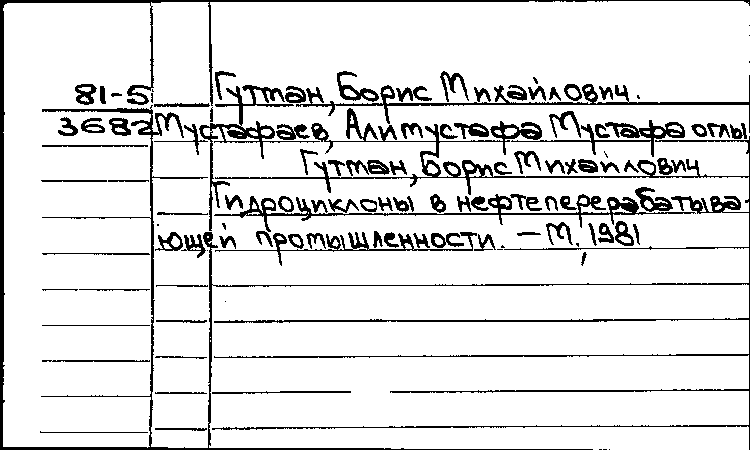 81-5 Гутман, Борис Михайлович.
3682 Мустафаев, Алимустафа Мустафа оглы,
Гутман, Борис Михайлович.
Гидроциклоны в нефтеперерабатыва-
ющей промышленности. — М., 1981.